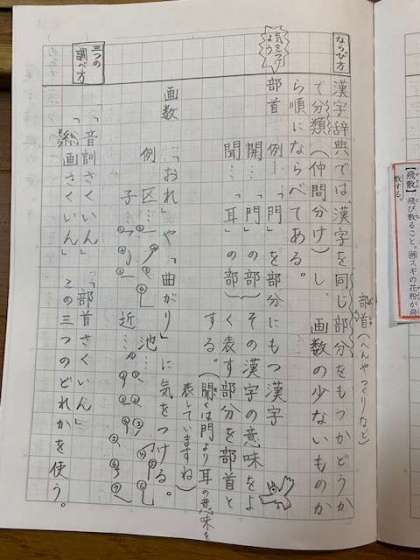 ならび方
漢字辞典では漢字を同じ部分をもつかどうか
部首(へんやつくりなど)
で分類(仲間分け)し、画数の少ないものか
ら順にならべてある。
気をつけよう
部首 例…「門」を部分にもつ漢字
開…「門」の部 その漢字の意味をよ
聞…「耳」の部 く表す部分を部首と
する。(聞くは門より耳の意味を
表していますね)
画数…「おれ」や「曲がり」に気をつける。
例 区… 池…
子… 近…
三つの調べ方
「音訓さくいん」「部首さくいん」
「総画さくいん」この三つのどれかを使う。
【飛散】飛び散ること。例スギの花粉が飛
散する。